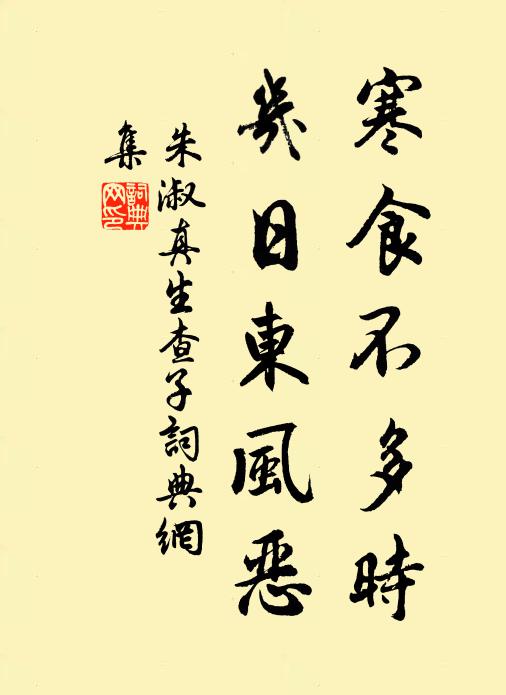 寒食不多時
幾日東風惡
朱淑真生查子詞典網
集
詞典網印